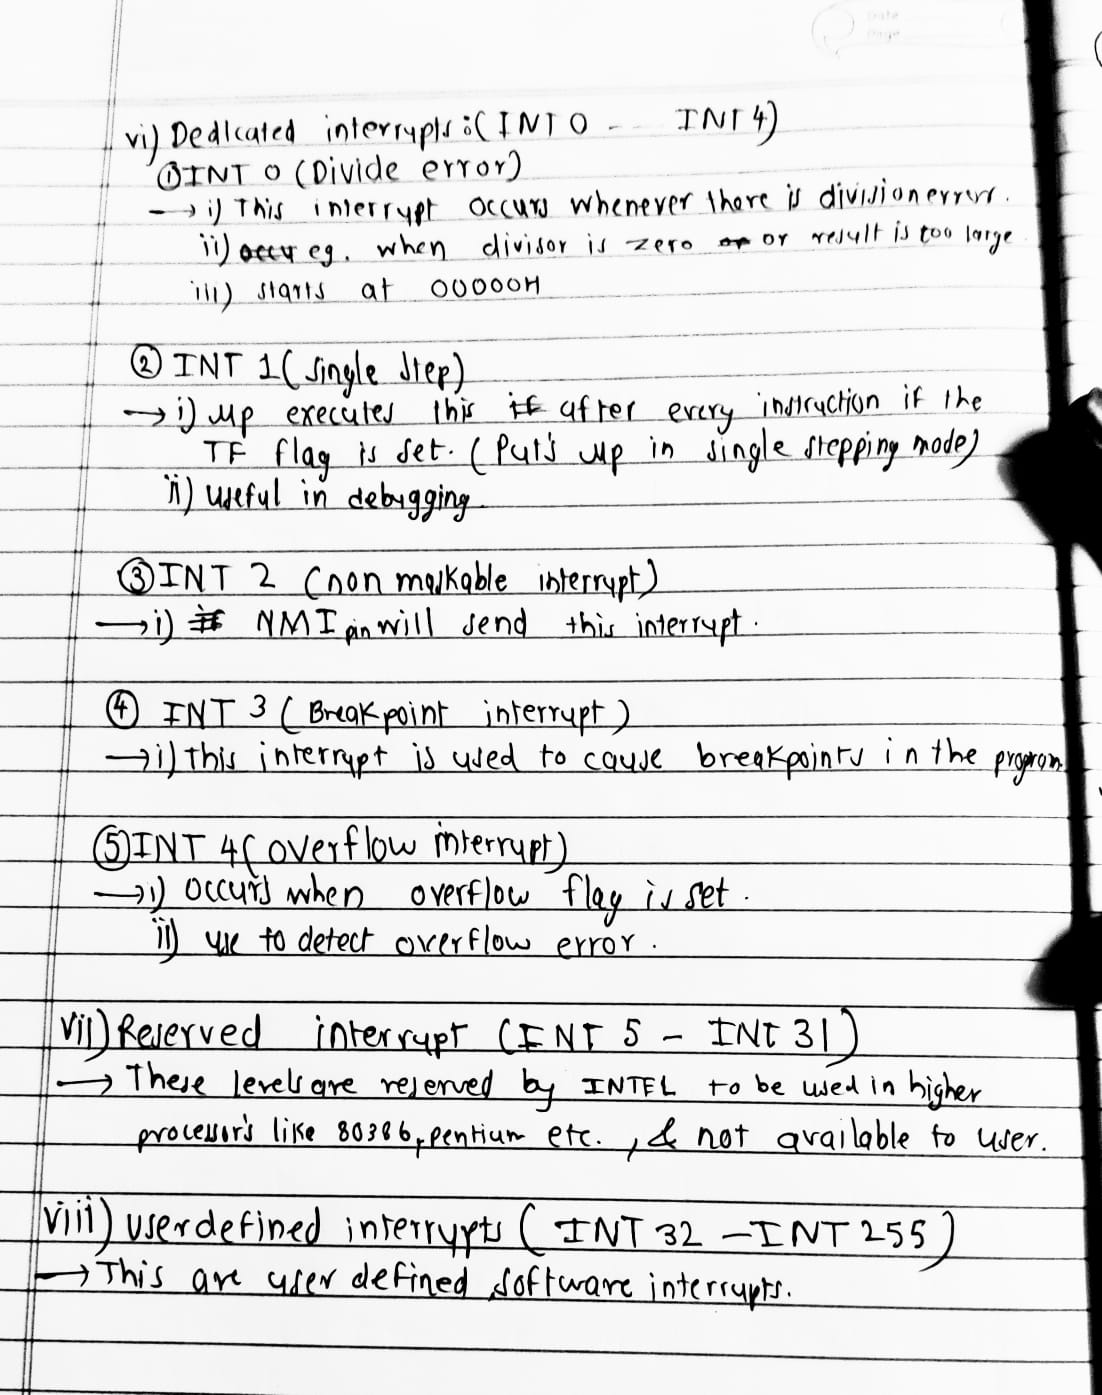 Date
Page
vi) Dedicated interrupts :( INT 0 -- INT 4)
① INT 0 (Divide error)
→ i) This interrupt occurs whenever there is division error.
ii) occu eg. when divisor is zero or or result is too large
iii) starts at 00000H
② INT 1 ( single step)
→ i) μp executes this if after every instruction if the
TF flag is set. ( Put's μp in single stepping mode)
ii) useful in debugging
③ INT 2 (non maskable interrupt)
→ i) NMI pin will send this interrupt.
④ INT 3 ( Breakpoint interrupt )
→ i) This interrupt is used to cause breakpoints in the program
⑤ INT 4 ( overflow interrupt)
→ i) occurs when overflow flag is set.
ii) use to detect overflow error.
vii) Reserved interrupt (INT 5 - INT 31)
→ These levels are reserved by INTEL to be used in higher
processor's like 80386, pentium etc. , & not available to user.
viii) userdefined interrupts ( INT 32 - INT 255 )
→ This are user defined software interrupts.